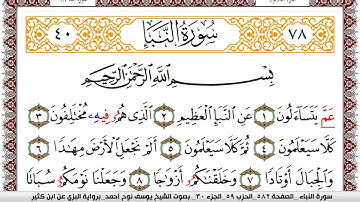 ٧٨ سُورَةُ النَّبَإِ ٤٠
بِسْمِ ٱللَّهِ ٱلرَّحْمَٰنِ ٱلرَّحِيمِ
عَمَّ يَتَسَآءَلُونَ ١ عَنِ ٱلنَّبَإِ ٱلْعَظِيمِ ٢ ٱلَّذِى هُمُۥ فِيهِۦ مُخْتَلِفُونَ ٣
كَلَّا سَيَعْلَمُونَ ٤ ثُمَّ كَلَّا سَيَعْلَمُونَ ٥ أَلَمْ نَجْعَلِ ٱلْأَرْضَ مِهَٰدًا ٦
وَٱلْجِبَالَ أَوْتَادًا ٧ وَخَلَقْنَٰكُمُۥ أَزْوَٰجًا ٨ وَجَعَلْنَا نَوْمَكُمُۥ سُبَاتًا
سورة النبإ _الصفحة ٥٨٢ _الحزب ٥٩ _الجزء ٣٠ _ بصوت الشيخ يوسف نوح أحمد _برواية البزي عن ابن كثير